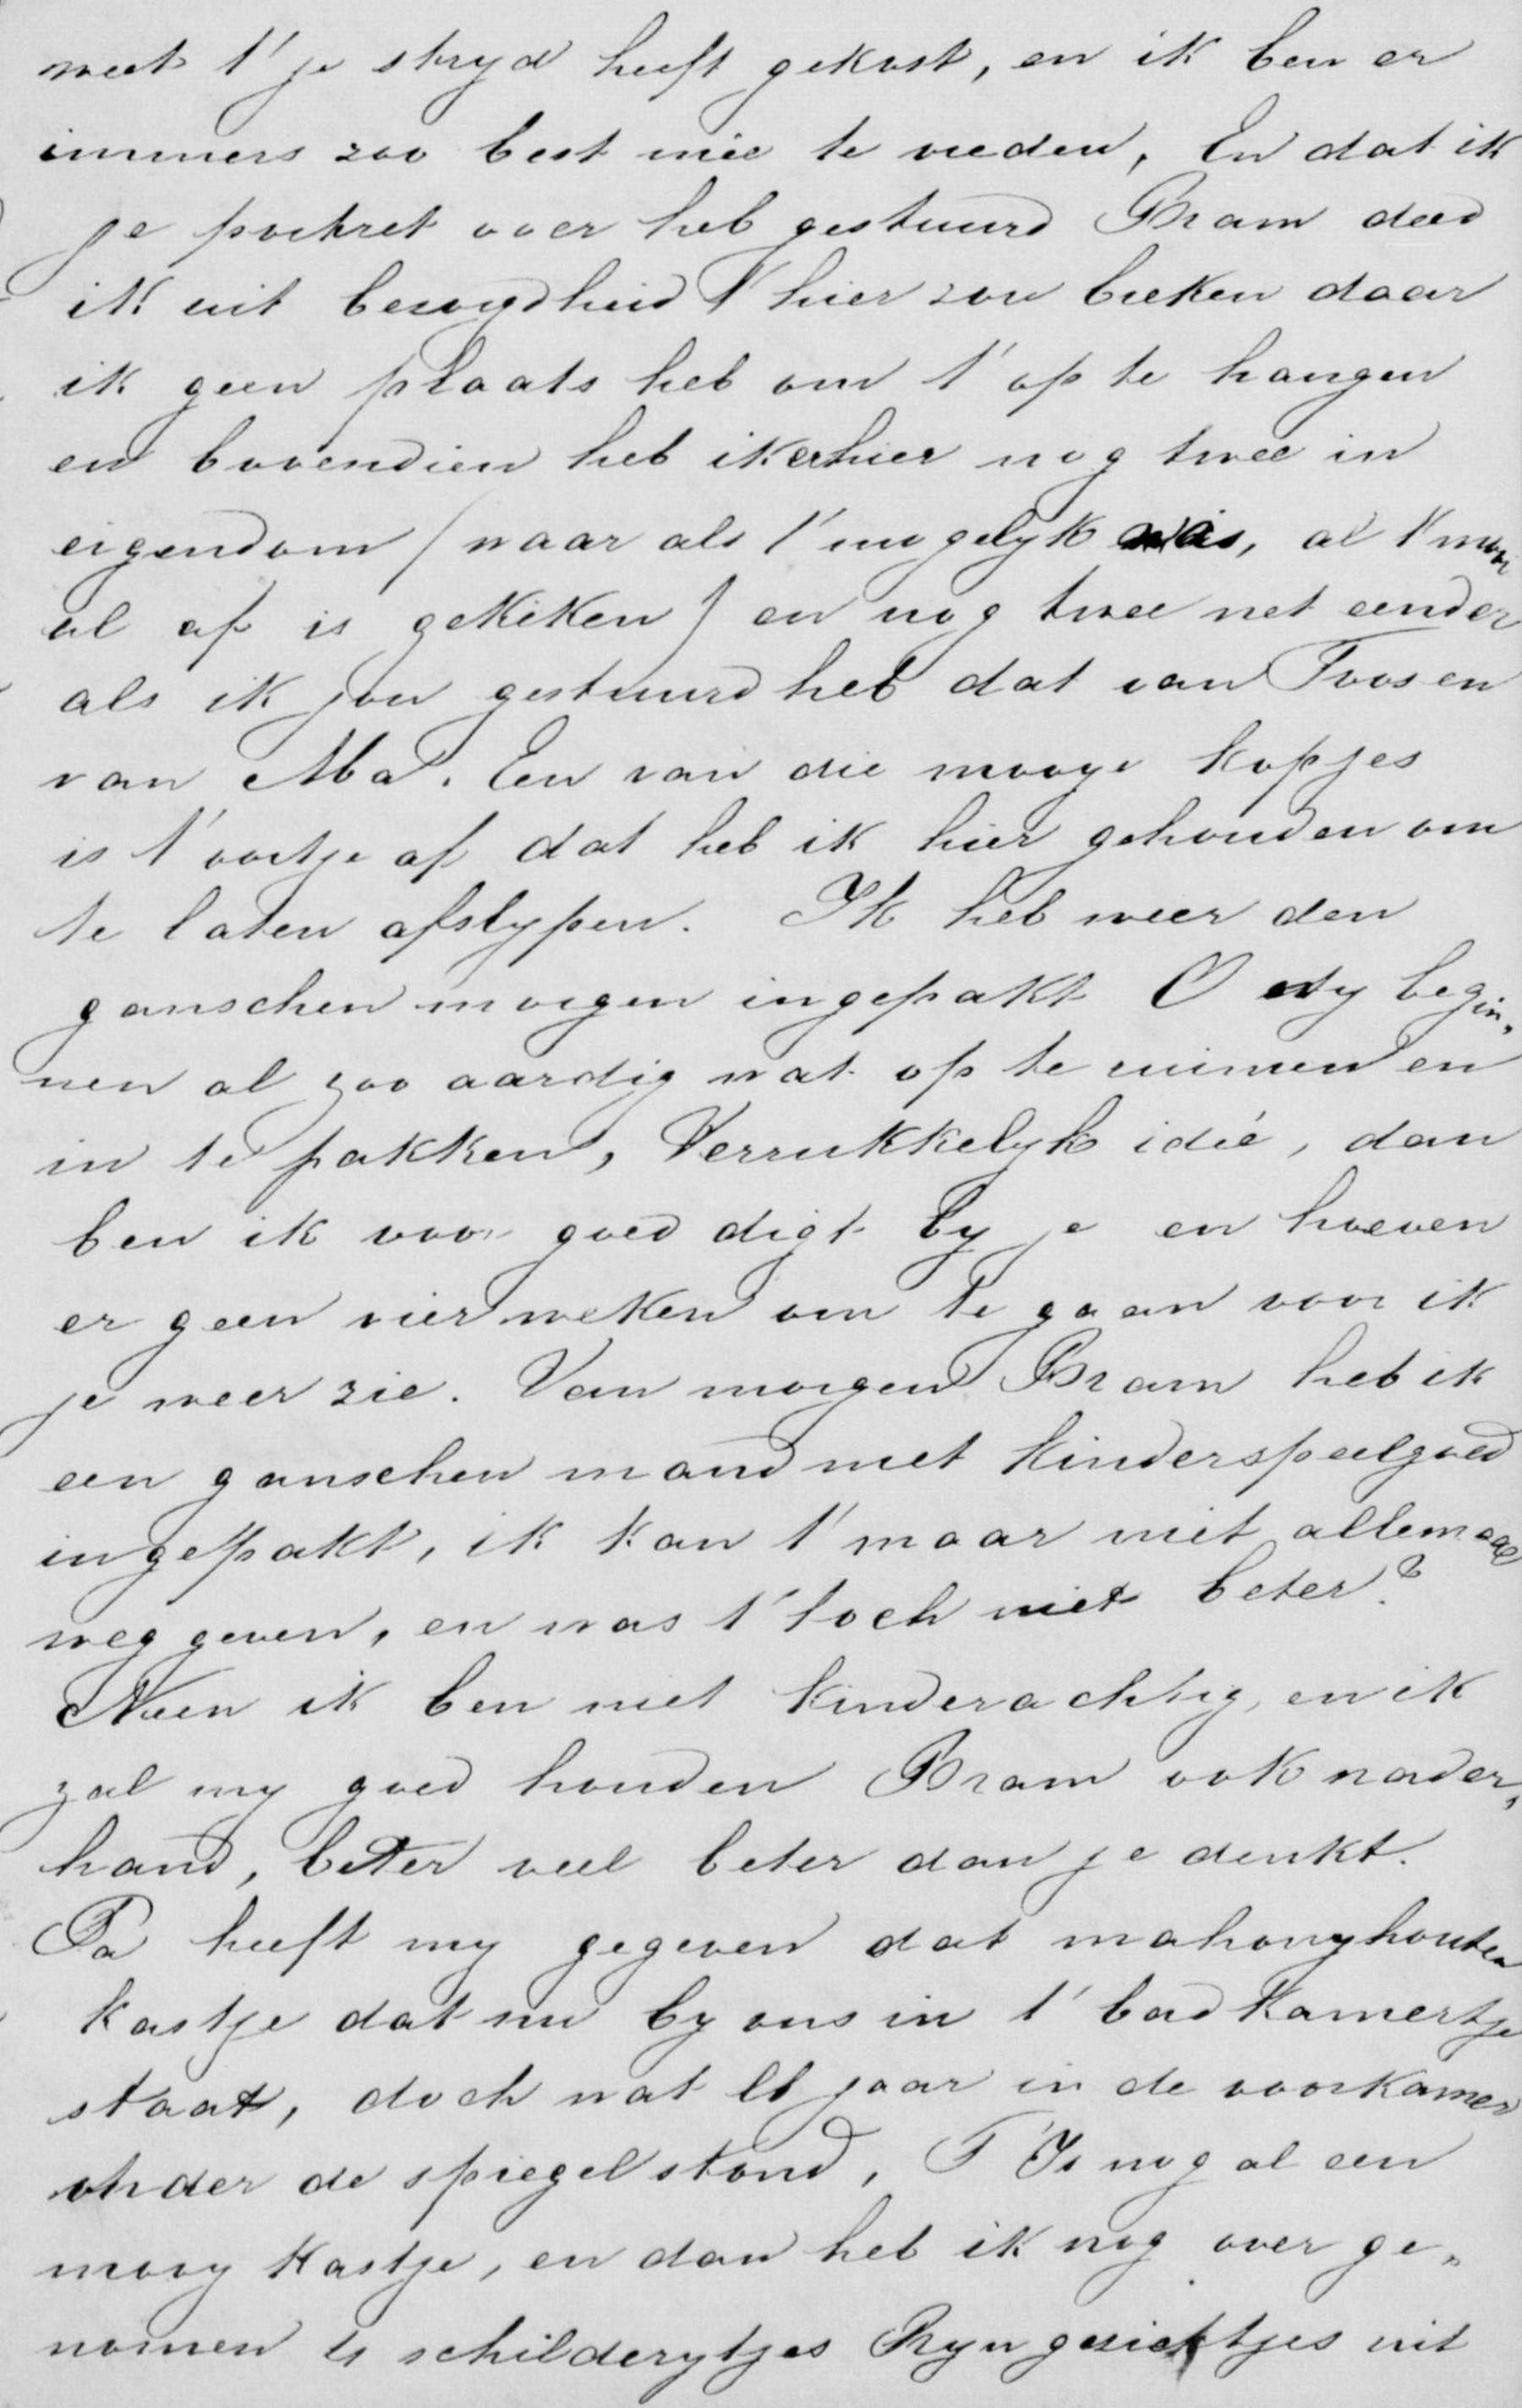 weet t' je stryd heeft gekost, en ik ben er
immers zoo best mee te vreden, En dat ik
je portret over heb gestuurd Bram deed
ik uit bezorgdheid t' hier zou breken daar
ik geen plaats heb om t' op te hangen
en bovendien heb ik er hier nog twee in
eigendom (waar als t' mogelyk was, al t' mooi
al af is gekeken) en nog twee net eender
als ik jou gestuurd heb dat van Toos en
van Ma. Een van die mooye kopjes
is t' oortje af dat heb ik hier gehouden om
te laten afslypen. Ik heb weer den
ganschen morgen ingepakt O wy begin„
nen al zoo aardig wat op te ruimen en
in te pakken, Verrukkelyk idée, dan
ben ik voor goed digt by je en hoeven
er geen vier weken om te gaan voor ik
je weer zie. Van morgen Bram heb ik
een ganschen mand met kinderspeelgoed
ingepakt, ik kan t' maar niet allemaal
weg geven, en was t' toch niet beter?
Neen ik ben niet kinderachtig, en ik
zal my goed houden Bram ook nader„
hand, beter veel beter dan je denkt.
Pa heeft my gegeven dat mahonyhouten
kastje dat nu by ons in t' badkamertje
staat, doch wat jaar in de voorkamer
onder de spiegel stond, T' Is nog al een
mooy kastje, en dan heb ik nog over ge„
nomen schilderytjes Ryngezichtjes uit